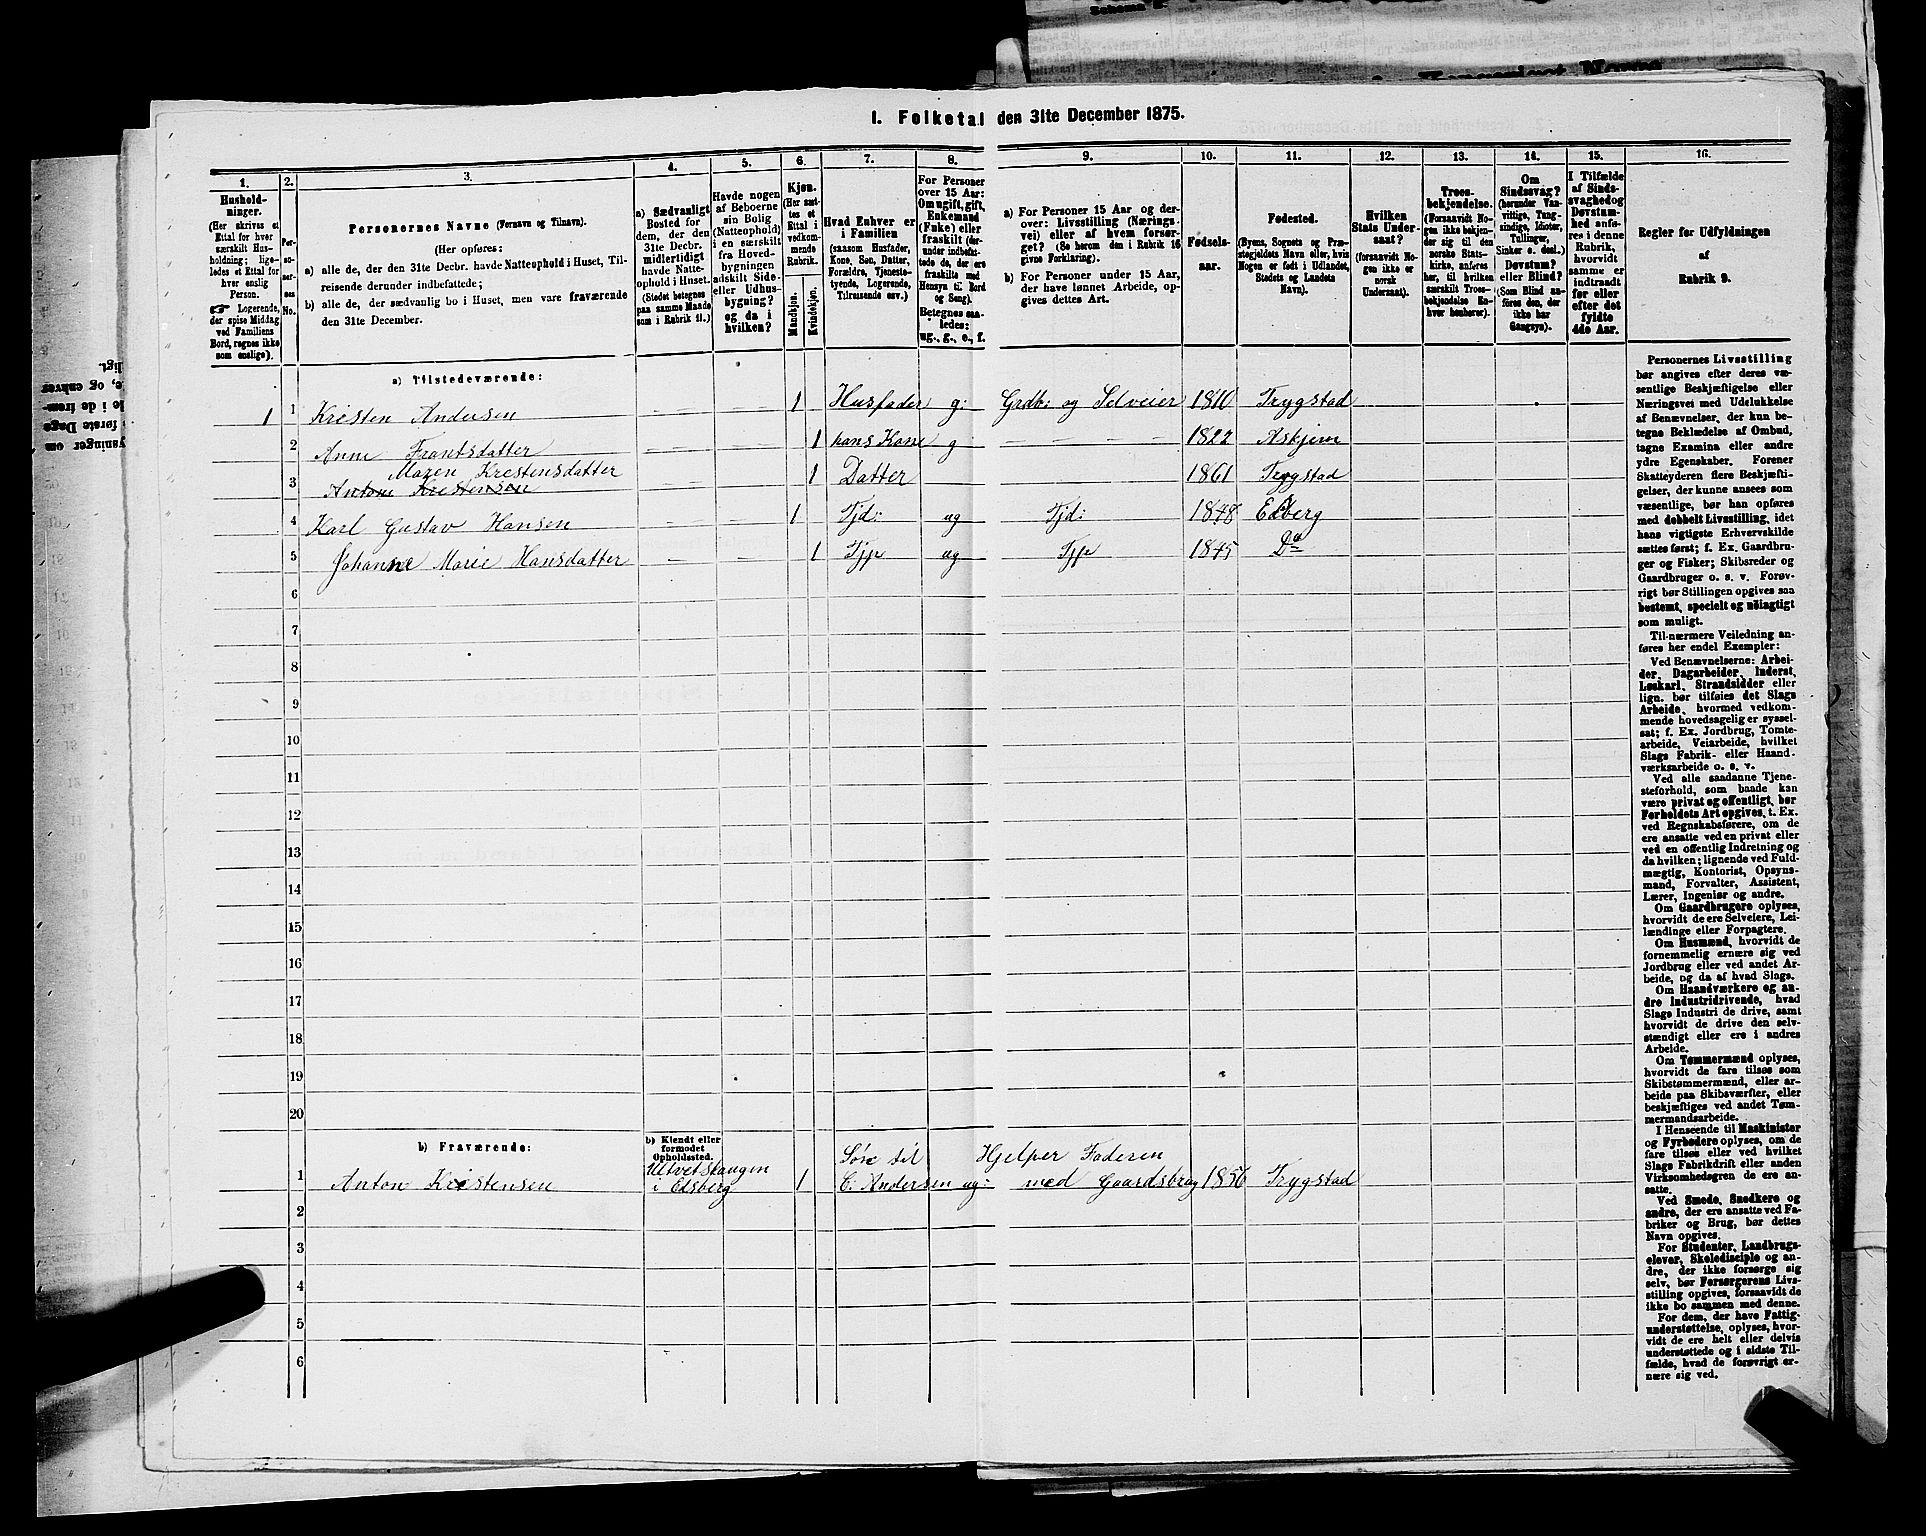 I. Folketal den 31te December 1875.
1. 2. 3. 4. 5. 6. 7. 8. 9. 10. 11. 12. 13. 14. 15. 16.
Hushold-
ninger.
(Her skrives et
Ettal for hver
særskilt Hus-
holdning; lige-
ledes et Ettal for
hver enslig
Person.
☞ Logerende,
der spise Middag
ved Familiens
Bord, regnes ikke
som enslige).
Per-
so-
ner-
nes
No.
Personernes Navne (Fornavn og Tilnavn).
(Her opføres:
a) alle de, der den 31te Decbr. havde Natteophold i Huset, Til-
reisende derunder indbefattede;
b) alle de, der sædvanlig bo i Huset, men vare fraværende
den 31te December.
a) Sædvanligt
Bosted for
dem, der den
31te Decbr.
midlertidigt
havde Natte-
ophold i Huset.
(Stedet betegnes
paa samme Maade
som i Rubrik 11.)
Havde nogen
af Beboerne
sin Bolig
(Natteophold)
i en særskilt
fra Hoved-
bygningen
adskilt Side-
eller Udhus-
bygning?
og da i
hvilken?
Kjøn.
(Her sæt-
tes et
Ettal i
vedkom-
mende
Rubrik.
Mandkjøn.
Kvindekjøn.
Hvad Enhver er
i Familien
(saasom Husfader,
Kone, Søn, Datter,
Forældre, Tjeneste-
tyende, Logerende,
Tilreisende osv.)
For Personer
over 15 Aar:
Om ugift, gift,
Enkemand
(Enke) eller
fraskilt (der-
under indbefat-
tede de, der ere
fraskilte med
Hensyn til Bord
og Seng).
Betegnes saa-
ledes:
ug., g., e., f.
a) For Personer 15 Aar og der-
over: Livsstilling (Nærings-
vei) eller af hvem forsør-
get? (Se herom den i Rubrik 16
givne Forklaring).
b) For Personer under 15 Aar,
der have lønnet Arbeide, op-
gives dettes Art.
Fødsels-
aar.
Fødested.
(Byens, Sognets og Præ-
stegjeldets Navn eller, hvis
Nogen er født i Udlandet,
Stedets og Landets
Navn).
Hvilken
Stats Under-
saat?
(forsaavidt No-
gen ikke er
norsk
Undersaat).
Troes-
bekjendelse.
(Forsaavidt No-
gen ikke bekjen-
der sig til den
norske Stats-
kirke, anføres
her, til hvilken
særskilt Troes-
bekjendelse En-
hver henhører).
Om
Sindssvag?
(herunder Van-
vittige, Tung-
sindige, Idioter,
Tullinger,
Sinker o. desl.)
Døvstum?
eller Blind?
(Som Blind an-
føres den, der
ikke har
Gangsyn).
I Tilfælde
af Sinds-
svaghed og
Døvstum-
hed anfø-
res i denne
Rubrik,
hvorvidt
samme er
indtraadt
før eller
efter det
fyldte
4de Aar.
Regler for Udfyldningen
af
Rubrik 9.
a) Tilstedeværende:
1 1 Kristen Andersen – – 1 Husfader g: Grdb: og Selveier 1810 Trygstad
2 Anne Frantsdatter – – 1 hans Kone g – – – – 1822 Askjim
Maren Kristensdatter
3 Anton Kristensen – – 1 Datter 1861 Trygstad
4 Karl Gustav Hansen – – 1 Tjd: ug Tjd: 1848 Edberg
5 Johanne Marie Hansdatter – – 1 Tjp ug Tjp 1845 Do
6
7
8
9
10
11
12
13
14
15
16
17
18
19
20
b) Fraværende:
b) Kjendt eller
formodet
Opholdssted.
Søn til Hjelper Faderen
1 Anton Kristensen i Edsberg 1 C. Andersen ug: med Gaardsbrug 1856 Trygstad
2
3
4
5
6
Personernes Livsstilling
bør angives efter deres væ-
sentlige Beskjæftigelse eller
Næringsvei med Udelukkelse
af Benævnelser, der kun be-
tegne Beklædelse af Ombud,
tagne Examina eller andre
ydre Egenskaber. Forener
Skatteyderen flere Beskjæfti-
gelser, der kunne ansees som
væsentlige, bør han opføres
med dobbelt Livsstilling, idet
hans vigtigste Erhvervskilde
sættes først; f. Ex. Gaardbru-
ger og Fisker; Skibsreder og
Gaardbruger o. s. v. Forøv-
rigt bør Stillingen opgives saa
bestemt, specielt og nøiagtigt
som muligt.
Til nærmere Veiledning an-
føres her endel Exempler:
Ved Benævnelserne: Arbei-
der, Dagarbeider, Inderst,
Løskarl, Strandsidder eller
lign. bør tilføies det Slags
Arbeide, hvormed vedkom-
mende hovedsagelig er syssel-
sat; f. Ex. Jordbrug, Tomte-
arbeide, Veiarbeide, hvilket
Slags Fabrik- eller Haand-
værksarbeide o. s. v.
Ved alle saadanne Tjene-
steforhold, som baade kan
være privat og offentligt, bør
Forholdets Art opgives, t. Ex.
ved Regnskabsførere, om de
ere ansatte ved en privat eller
ved en offentlig Indretning og
da hvilken; lignende ved Fuld-
mægtig, Kontorist, Opsyns-
mand, Forvalter, Assistent,
Lærer, Ingeniør og andre.
Om Gaardbrugere oplyses,
hvorvidt de ere Selveiere, Lei-
lændinge eller Forpagtere.
Om Husmænd, hvorvidt de
fornemmelig ernære sig ved
Jordbrug eller ved andet Ar-
beide, og da af hvad Slags.
Om Haandværkere og an-
dre Industridrivende, hvad
Slags Industri de drive, samt
hvorvidt de drive den selv-
stændigt eller ere i andres
Arbeide.
Om Tømmermænd oplyses,
hvorvidt de fare tilsøs som
Skibstømmermænd, eller ar-
beide paa Skibsværfter, eller
beskjæftiges ved andet Tøm-
mermandsarbeide.
I Henseende til Maskinister
og Fyrbødere oplyses, om de
fare tilsøs eller ved hvilket
Slags Fabrikdrift eller anden
Virksomhedsgren de ere an-
satte.
Ved Smede, Snedkere og
andre, der ere ansatte ved Fa-
briker og Brug, bør dettes
Navn opgives.
For Studenter, Landbrugs-
elever, Skoledisciple og an-
dre, der ikke forsørge sig
selv, bør Forsørgerens Livs-
stilling opgives, forsaavidt de
ikke bo sammen med denne.
For dem, der have Fattig-
understøttelse, oplyses, hvor-
vidt de ere helt eller delvis
understøttede og i sidste Til-
fælde, hvad de forøvrigt er-
nære sig ved.